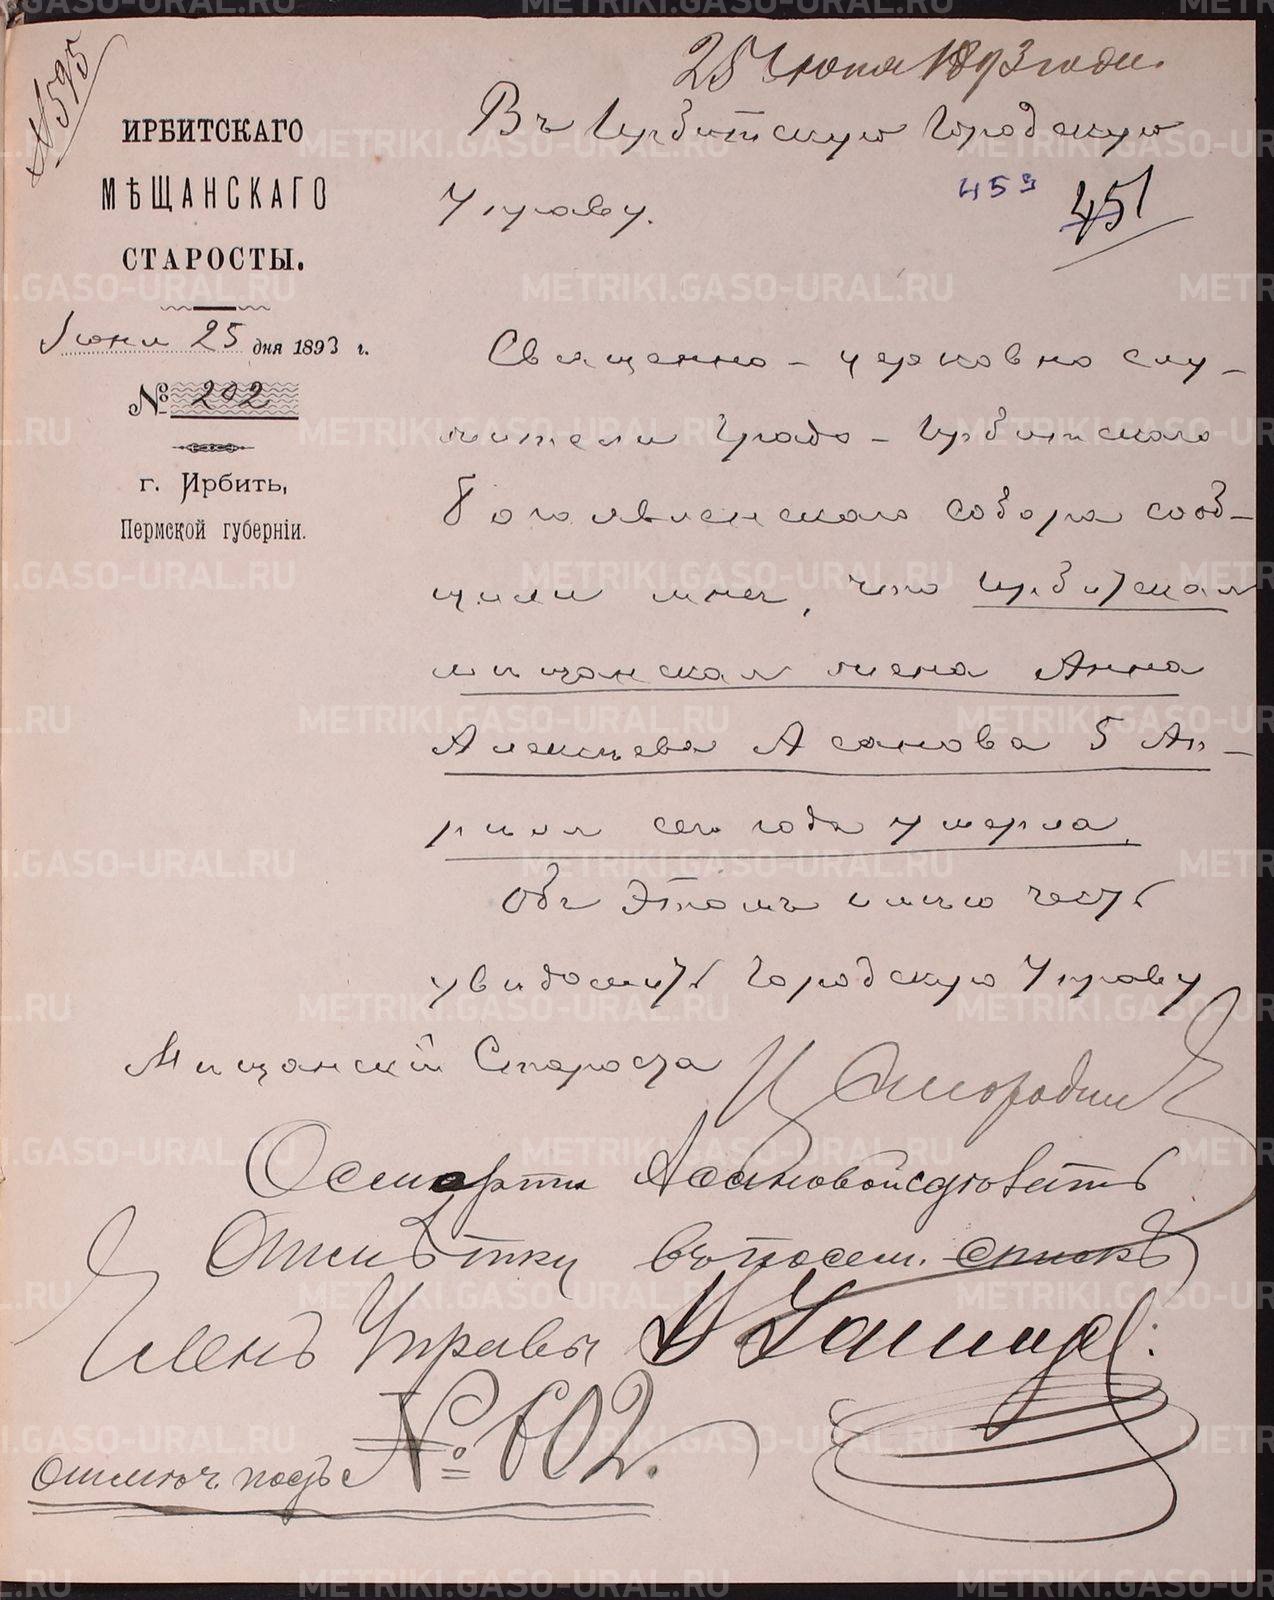 25 Июня 1893 года.
№ 595
ИРБИТСКАГО
МѢЩАНСКАГО
СТАРОСТЫ.
Июня 25 дня 1893 г.
№ 202
г. Ирбить,
Пермской губерніи.
Въ Ирбитскую Городскую
Управу.
459 451
Священно-церковно слу-
жители Градо-Ирбитскаго
Богоявленскаго собора сооб-
щили мнѣ, что Ирбитская
мищанская жена Анна
Алексѣева Асанова 5 Ап-
риля сего года умерла.
Объ этомъ имѣю честь
увидомить Городскую Управу
Мищанскій Староста
О смерти Асановой сдѣлать
Отмѣтку въ посем. спискѣ
Членъ Управы
отмѣч. подъ № 602.
METRIKI.GASO-URAL.RU